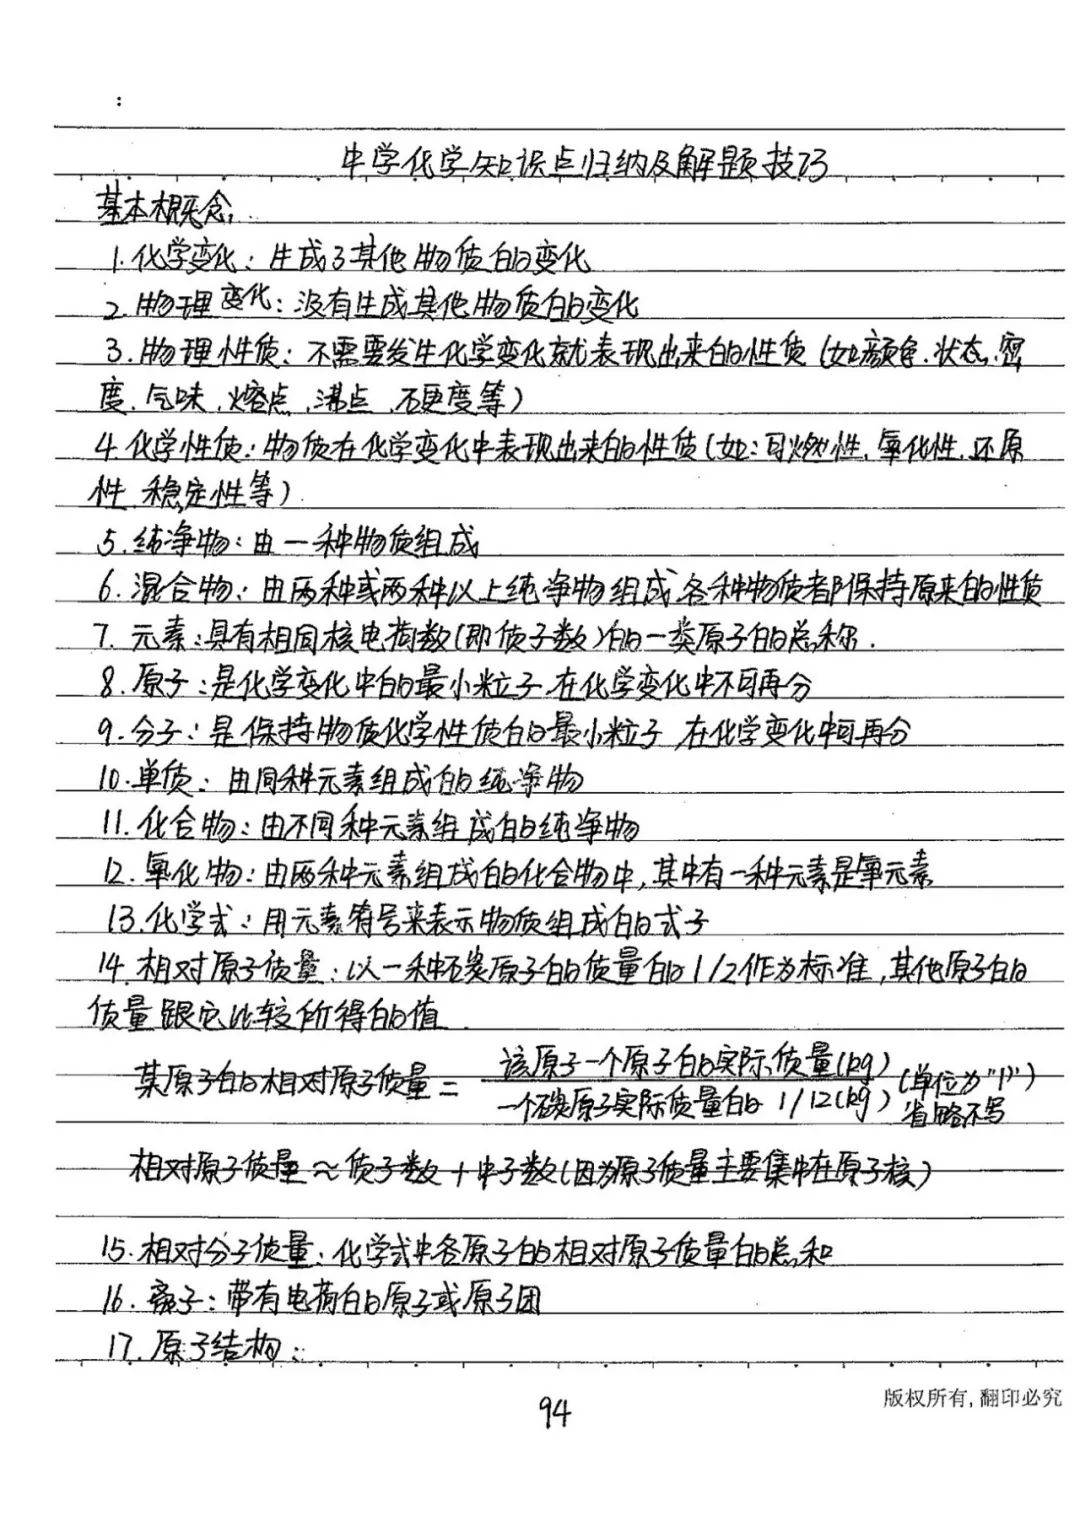 :
中学化学知识点归纳及解题技巧
基本概念:
1.化学变化：生成了其他物质的变化
2.物理变化：没有生成其他物质的变化
3.物理性质：不需要发生化学变化就表现出来的性质(如颜色.状态.密
度.气味.熔点.沸点.硬度等)
4.化学性质：物质在化学变化中表现出来的性质(如：可燃性.氧化性.还原
性.稳定性等)
5.纯净物：由一种物质组成
6.混合物：由两种或两种以上纯净物组成,各种物质都保持原来的性质
7.元素：具有相同核电荷数(即质子数)的一类原子的总称.
8.原子：是化学变化中的最小粒子,在化学变化中不可再分
9.分子：是保持物质化学性质的最小粒子,在化学变化中可再分
10.单质：由同种元素组成的纯净物
11.化合物：由不同种元素组成的纯净物
12.氧化物：由两种元素组成的化合物中,其中有一种元素是氧元素
13.化学式：用元素符号来表示物质组成的式子
14.相对原子质量：以一种碳原子的质量的1/12作为标准,其他原子的
质量跟它比较所得的值
某原子的相对原子质量= 该原子一个原子的实际质量(kg) / 一个碳原子实际质量的1/12(kg) (单位为"1") 省略不写
相对原子质量≈质子数+中子数(因为原子质量主要集中在原子核)
15.相对分子质量：化学式中各原子的相对原子质量的总和
16.离子：带有电荷的原子或原子团
17.原子结构：
94
版权所有,翻印必究